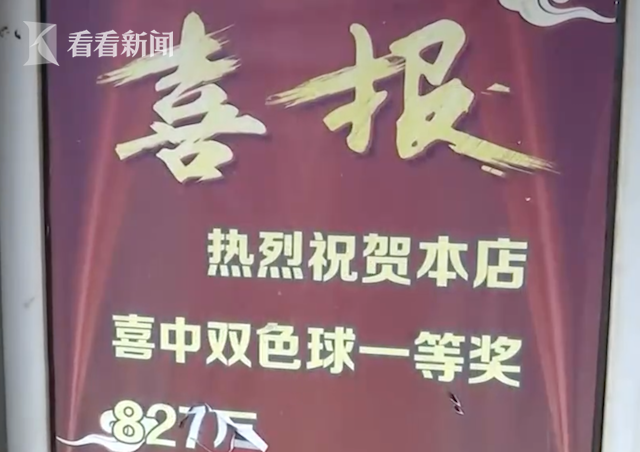 看看新闻
喜报
热烈祝贺本店
喜中双色球一等奖
827万